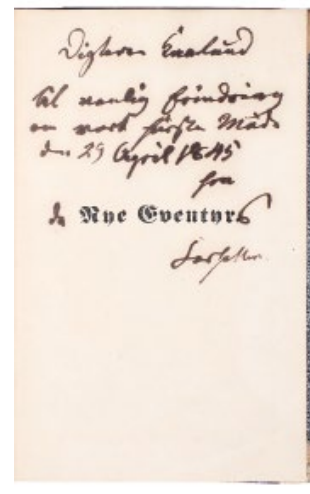 Digteren Kaalund
til venlig Erindring
om vort første Møde
den 29 April 1845
fra
de Nye Eventyrs
Forfatter.